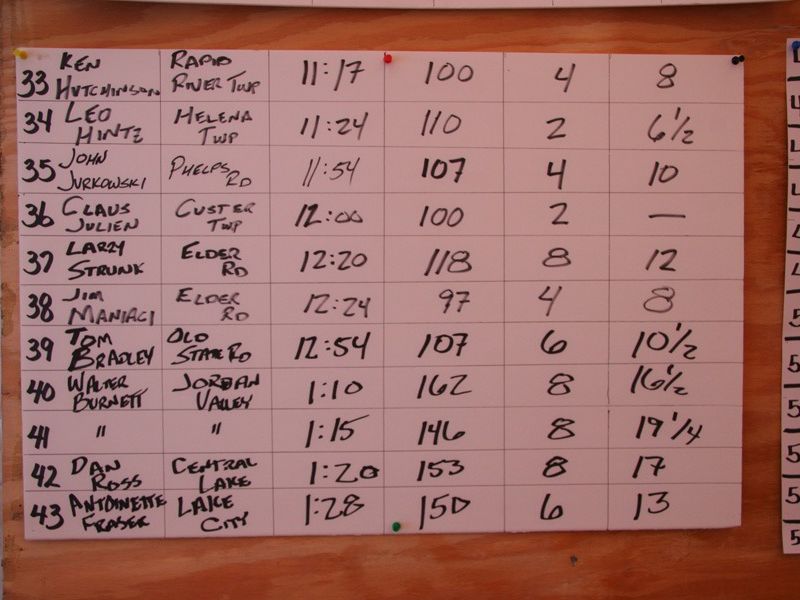 33 KEN HUTCHINSON RAPID RIVER TWP 11:17 100 4 8
34 LEO HINTZ HELENA TWP 11:24 110 2 6 1/2
35 JOHN JURKOWSKI PHELPS RD 11:54 107 4 10
36 CLAUS JULIEN CUSTER TWP 12:00 100 2 —
37 LARRY STRUNK ELDER RD 12:20 118 8 12
38 JIM MANIACI ELDER RD 12:24 97 4 8
39 TOM BRADLEY OLD STATE RD 12:54 107 6 10 1/2
40 WALTER BURNETT JORDAN VALLEY 1:10 162 8 16 1/2
41 " " 1:15 146 8 19 1/4
42 DAN ROSS CENTRAL LAKE 1:20 153 8 17
43 ANTOINETTE FRASER LAKE CITY 1:28 150 6 13